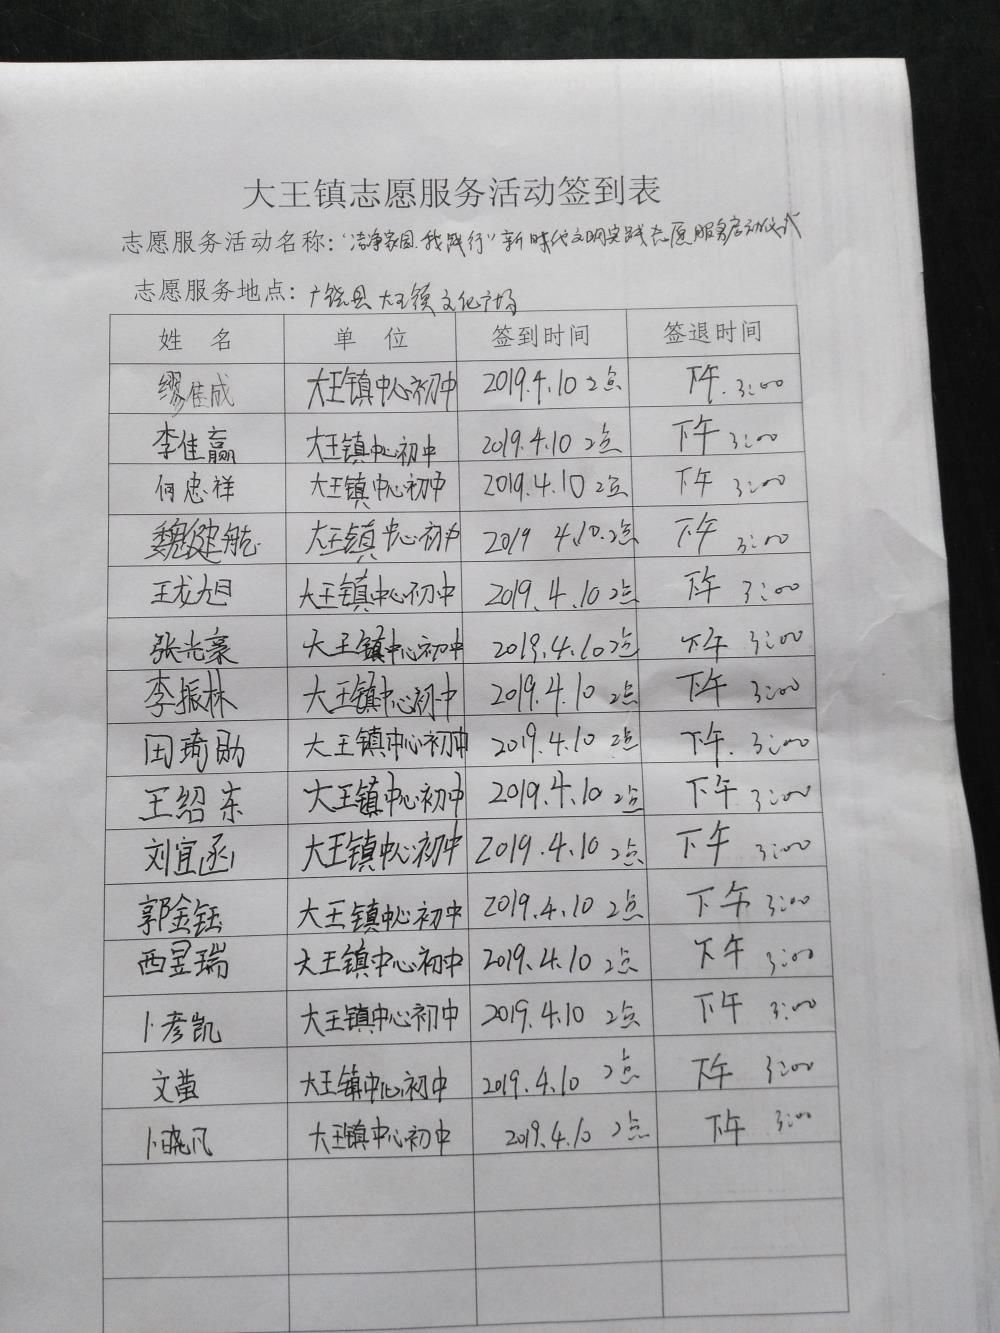 大王镇志愿服务活动签到表
志愿服务活动名称：“洁净家园·我践行”新时代文明实践志愿服务启动仪式
志愿服务地点：广饶县大王镇文化广场
姓 名 单 位 签到时间 签退时间
缪佳成 大王镇中心初中 2019.4.10 2点 下午.3:00
李佳赢 大王镇中心初中 2019.4.10 2点 下午 3:00
何忠祥 大王镇中心初中 2019.4.10 2点 下午 3:00
魏健航 大王镇中心初中 2019 4.10.2点 下午 3:00
王龙旭 大王镇中心初中 2019.4.10 2点 下午 3:00
张光豪 大王镇中心初中 2019.4.10 2点 下午 3:00
李振林 大王镇中心初中 2019.4.10 2点 下午 3:00
田琦勋 大王镇中心初中 2019.4.10 2点 下午. 3:00
王绍东 大王镇中心初中 2019.4.10 2点 下午 3:00
刘宜函 大王镇中心初中 2019.4.10 2点 下午 3:00
郭金钰 大王镇中心初中 2019.4.10 2点 下午 3:00
西昱瑞 大王镇中心初中 2019.4.10 2点 下午 3:00
卜彦凯 大王镇中心初中 2019.4.10 2点 下午 3:00
文萤 大王镇中心初中 2019.4.10 2点 下午 3:00
卜晓凡 大王镇中心初中 2019.4.10 2点 下午 3:00